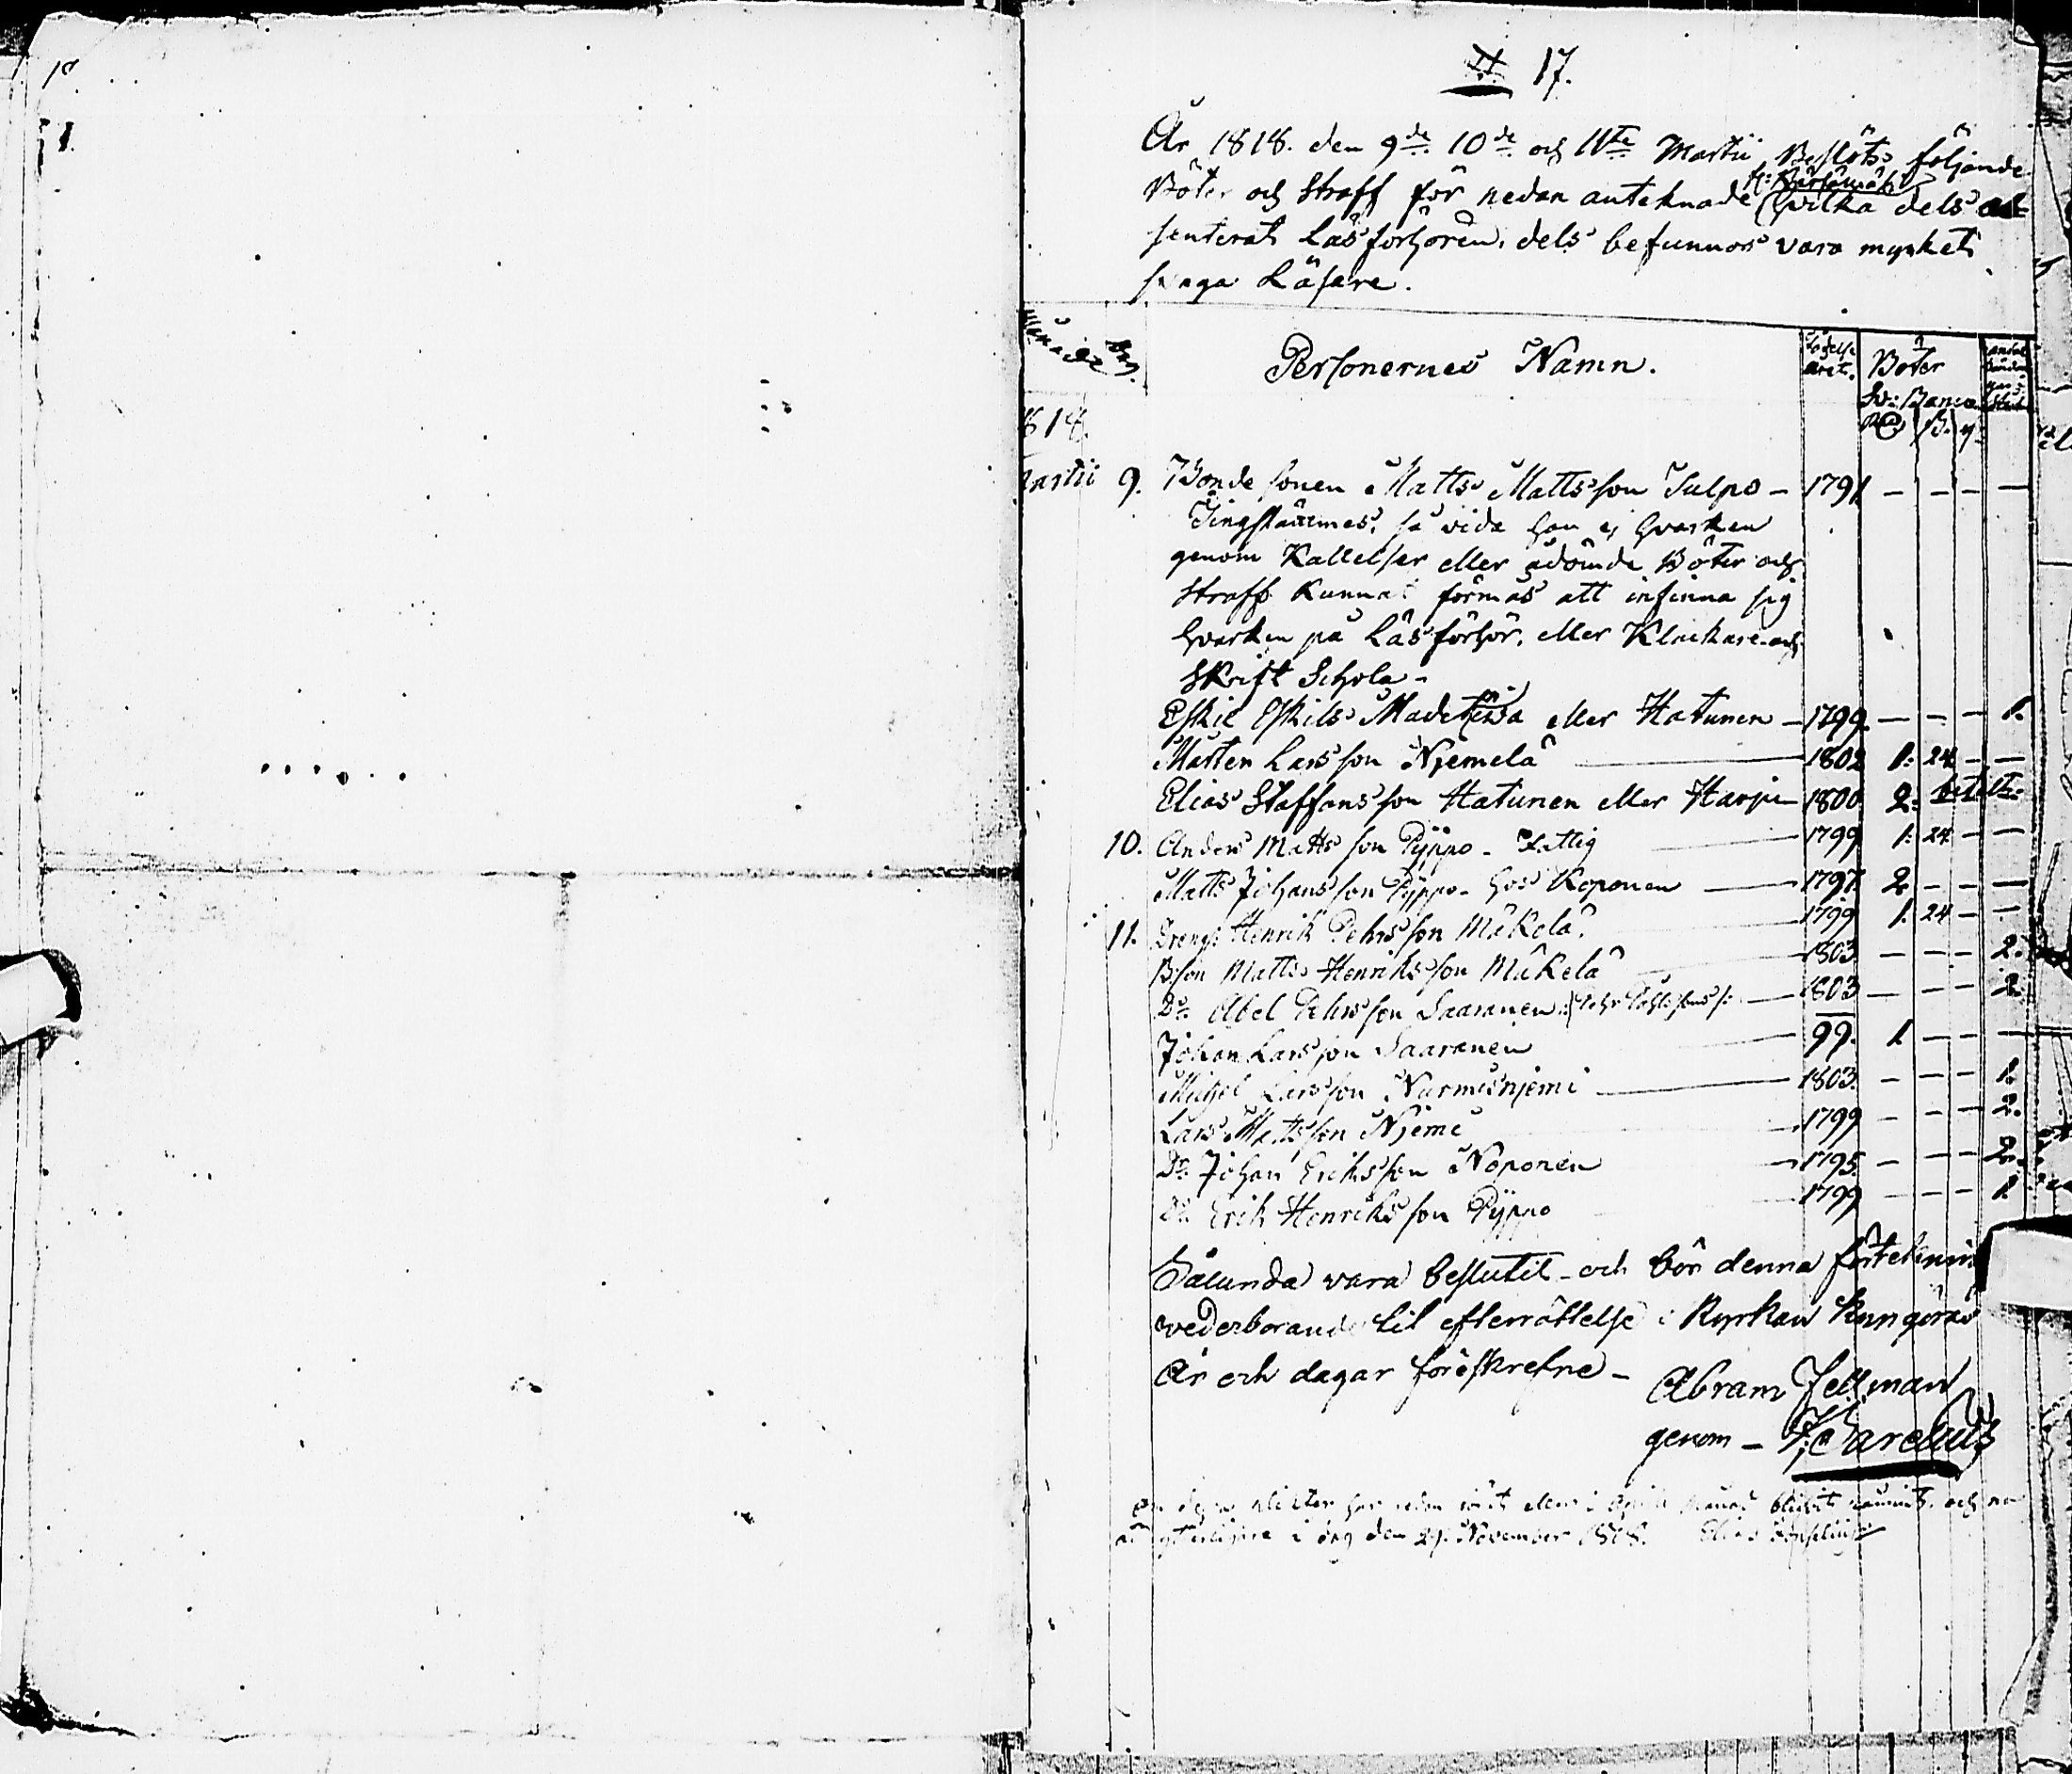 17.
År 1818. den 9de 10de och 11te Martii Beslöts följande
Böter och Straff för nedan anteknade hvilka dels ab-
senterat Läsförhören, dels befunnos vara mycket
svaga Läsare.
Månader Dag. Personernes Namn. Födelse året. Böter Sv: Banco
1818.
Martii 9. Bonde sonen Matts Mattsson Sulpo - 1791 - - - -
så vida han ej hvarken
genom Kallelser eller ådömda Böter och
Straff kunnat förmås att infinna sig
hvarken på Läsförhör, eller Klockare och
Skrift Schola -
Eskil Eskils eller Hatunen - 1799 - - - 1.
Mårten Larsson Njemelä 1802 1: 24 - -
Elias Staffansson Hatunen eller Harju 1800 2: betalt
10. Anders Mattsson Pyppo - Fattig 1799 1: 24 - -
Matts Johansson Pyppo - hos Koponen 1797 2 - - -
11. Dreng: Henrik Pehrsson Mäkelä. 1799 1. 24 - -
B:son Matts Henriksson Mäkelä 1803 - - - 2.
Do Abel Pehrsson Saaranen 1803 - - - 2.
Johan Larsson Saaranen 99. 1 - - -
Michel Larsson Nurmesnjemi 1803. - - - 1.
Lars Mattsson Njemi 1799 - - - 2.
Dr. Johan Eriksson Noponen 1795. - - - 2.
Do Erik Henriksson Pyppo 1799 - - - 1
Sålunda vara beslutit - och bör denna förtekning
vederborande til efterrättelse i Kyrkan kungöras
År och dagar föreskrefne -
Abram Fellman
genom -
har redan i April månad blifvit och nu
ytterligare i dag den 29. November 1818. Elias